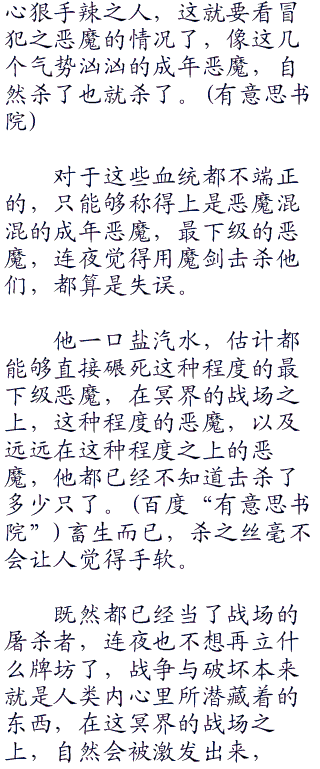 心狠手辣之人，这就要看冒
犯之恶魔的情况了，像这几
个气势汹汹的成年恶魔，自
然杀了也就杀了。(有意思书
院)
对于这些血统都不端正
的，只能够称得上是恶魔混
混的成年恶魔，最下级的恶
魔，连夜觉得用魔剑击杀他
们，都算是失误。
他一口盐汽水，估计都
能够直接碾死这种程度的最
下级恶魔，在冥界的战场之
上，这种程度的恶魔，以及
远远在这种程度之上的恶
魔，他都已经不知道击杀了
多少只了。(百度“有意思书
院”)畜生而已，杀之丝毫不
会让人觉得手软。
既然都已经当了战场的
屠杀者，连夜也不想再立什
么牌坊了，战争与破坏本来
就是人类内心里所潜藏着的
东西，在这冥界的战场之
上，自然会被激发出来，